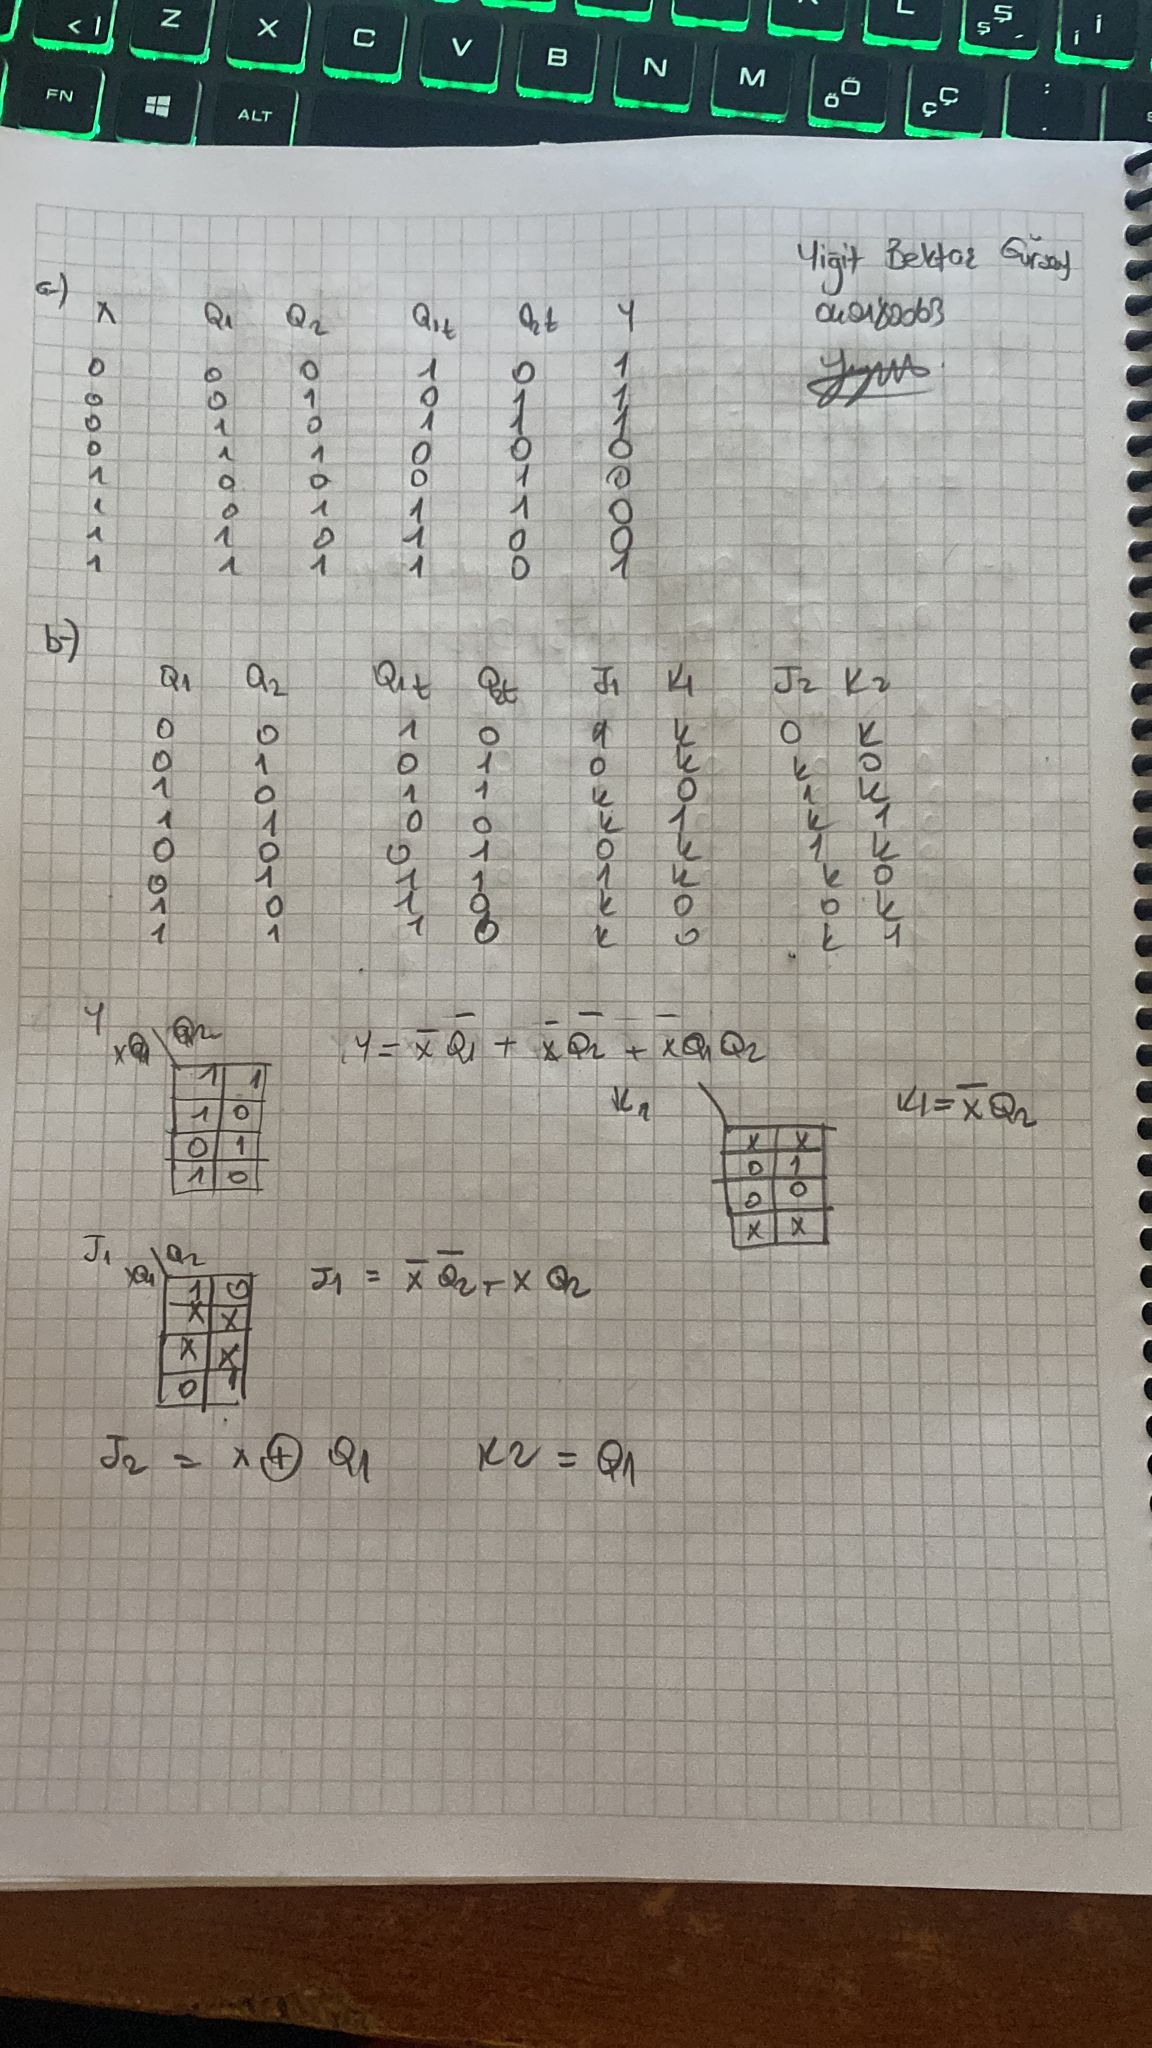 < | Z X C V B N M Ö Ö Ç Ç L Ş Ş İ i
FN ALT
Yiğit Bektaş Gürsoy
040180063
a)
X Q1 Q2 Q1t Q2t Y
0 0 0 1 0 1
0 0 1 0 1 1
0 1 0 1 1 1
0 1 1 0 0 0
1 0 0 0 1 0
1 0 1 1 1 0
1 1 0 1 0 0
1 1 1 1 0 1
b)
Q1 Q2 Q1t Q2t J1 K1 J2 K2
0 0 1 0 1 k 0 k
0 1 0 1 0 k k 0
1 0 1 1 k 0 1 k
1 1 0 0 k 1 k 1
0 0 0 1 0 k 1 k
0 1 1 1 1 k k 0
1 0 1 0 k 0 0 k
1 1 1 0 k 0 k 1
Y
xQ1 Q2
1 1
1 0
0 1
1 0
Y = x̄ Q̄1 + x̄ Q̄2 + x̄ Q1 Q2
K1
x x
0 1
0 0
x x
K1 = x̄ Q2
J1
xQ1 Q2
1 0
x x
x x
0 1
J1 = x̄ Q̄2 + x Q2
J2 = x ⊕ Q1 K2 = Q1